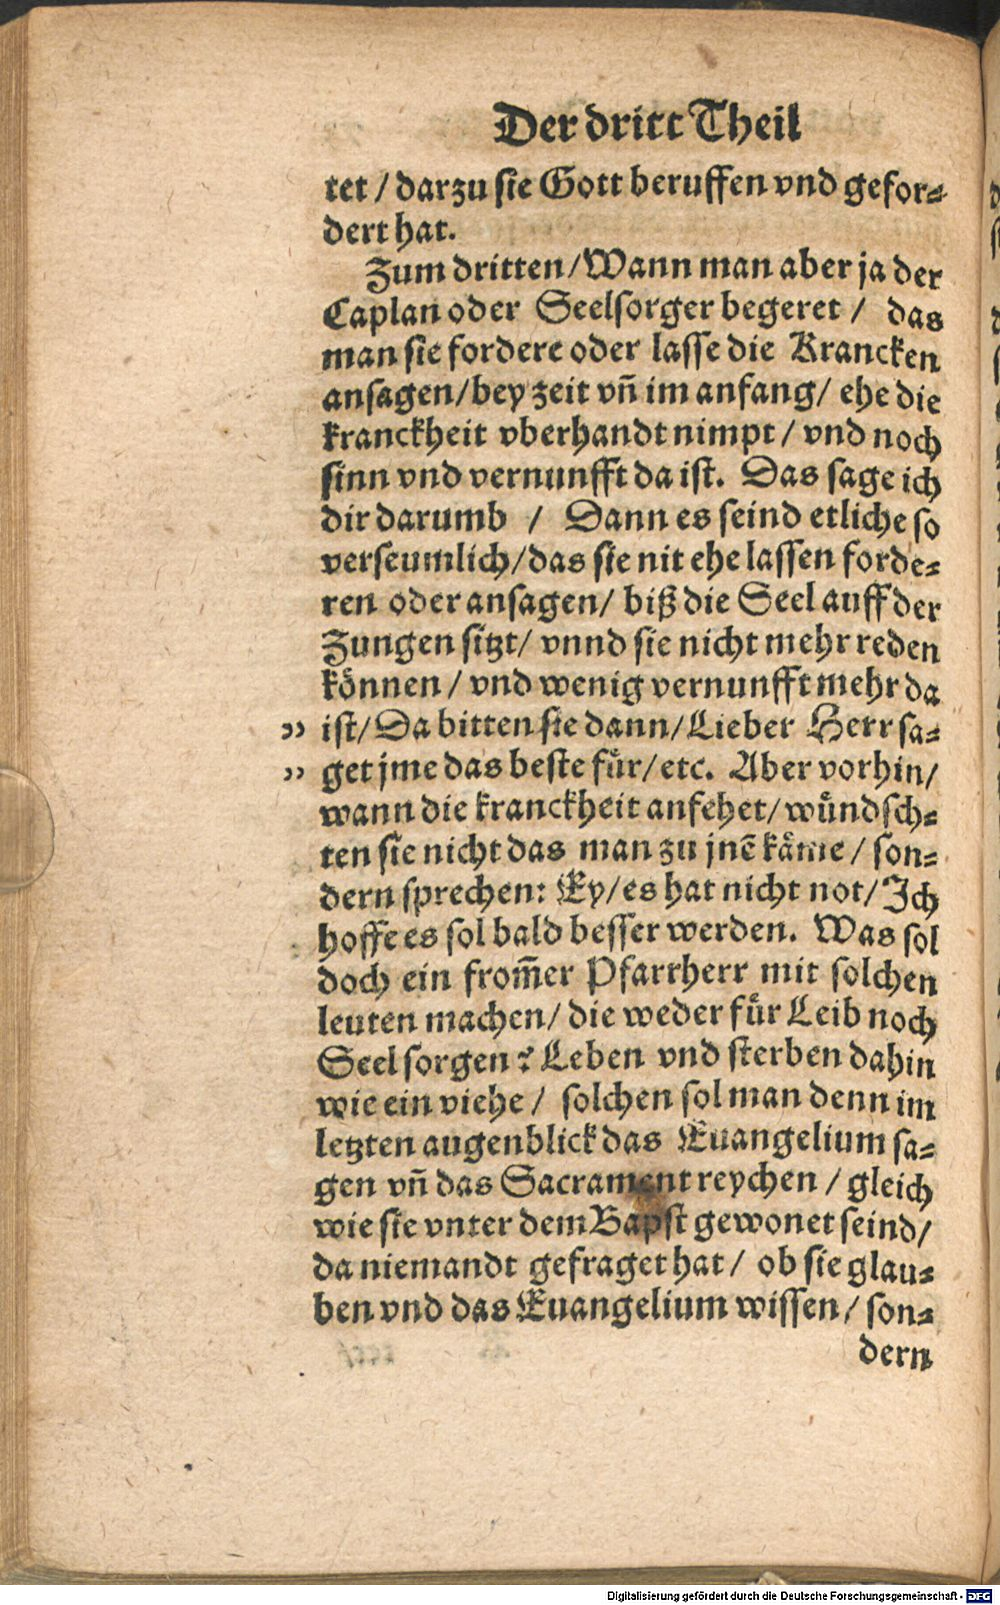 Der dritt Theil
tet / darzu sie Gott beruffen vnd gefor-
dert hat.
Zum dritten / Wann man aber ja der
Caplan oder Seelsorger begeret / das
man sie fordere oder lasse die Krancken
ansagen / bey zeit vñ im anfang / ehe die
kranckheit vberhandt nimpt / vnd noch
sinn vnd vernunfft da ist. Das sage ich
dir darumb / Dann es seind etliche so
verseumlich / das sie nit ehe lassen forde-
ren oder ansagen / biß die Seel auff der
Zungen sitzt / vnnd sie nicht mehr reden
können / vnd wenig vernunfft mehr da
„ ist / Da bitten sie dann / Lieber Herr sa-
„ get jme das beste für / etc. Aber vorhin /
wann die kranckheit anfehet / wündsch-
ten sie nicht das man zu jnẽ käme / son-
dern sprechen: Ey / es hat nicht not / Ich
hoffe es sol bald besser werden. Was sol
doch ein from̃er Pfarrherr mit solchen
leuten machen / die weder für Leib noch
Seel sorgen? Leben vnd sterben dahin
wie ein viehe / solchen sol man denn im
letzten augenblick das Euangelium sa-
gen vñ das Sacrament reychen / gleich
wie sie vnter dem Bapst gewonet seind /
da niemandt gefraget hat / ob sie glau-
ben vnd das Euangelium wissen / son-
dern
Digitalisierung gefördert durch die Deutsche Forschungsgemeinschaft - DFG